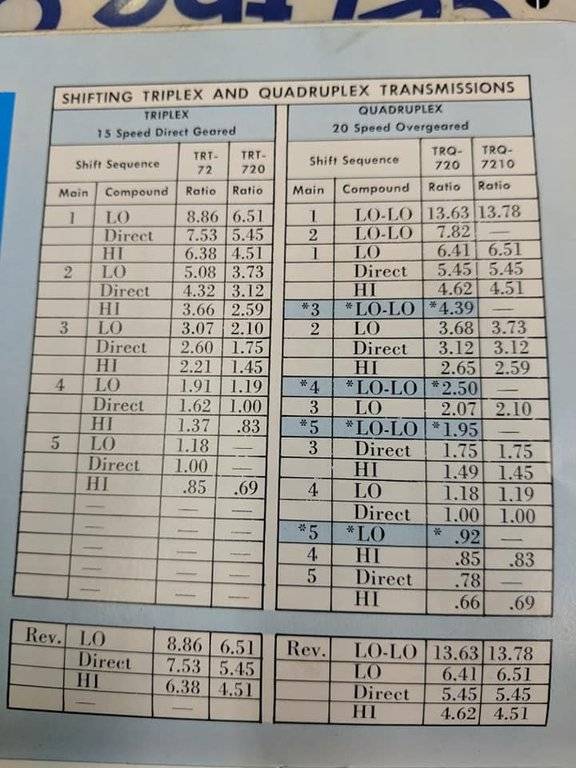 SHIFTING TRIPLEX AND QUADRUPLEX TRANSMISSIONS
TRIPLEX
15 Speed Direct Geared
Shift Sequence TRT-72 TRT-720
Main Compound Ratio Ratio
1 LO 8.86 6.51
Direct 7.53 5.45
HI 6.38 4.51
2 LO 5.08 3.73
Direct 4.32 3.12
HI 3.66 2.59
3 LO 3.07 2.10
Direct 2.60 1.75
HI 2.21 1.45
4 LO 1.91 1.19
Direct 1.62 1.00
HI 1.37 .83
5 LO 1.18 —
Direct 1.00 —
HI .85 .69
— — —
— — —
— — —
— — —
— — —
QUADRUPLEX
20 Speed Overgeared
Shift Sequence TRQ-720 TRQ-7210
Main Compound Ratio Ratio
1 LO-LO 13.63 13.78
2 LO-LO 7.82 —
1 LO 6.41 6.51
Direct 5.45 5.45
HI 4.62 4.51
*3 *LO-LO *4.39 —
2 LO 3.68 3.73
Direct 3.12 3.12
HI 2.65 2.59
*4 *LO-LO *2.50 —
3 LO 2.07 2.10
*5 *LO-LO *1.95 —
3 Direct 1.75 1.75
HI 1.49 1.45
4 LO 1.18 1.19
Direct 1.00 1.00
*5 *LO * .92 —
4 HI .85 .83
5 Direct .78 —
HI .66 .69
Rev. LO 8.86 6.51
Direct 7.53 5.45
HI 6.38 4.51
— —
Rev. LO-LO 13.63 13.78
LO 6.41 6.51
Direct 5.45 5.45
HI 4.62 4.51